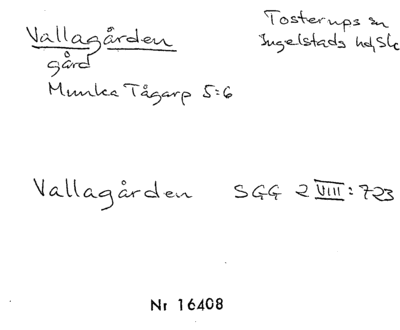 Vallagården
Tosterups sn
gård
Ingelstads hd, Sk
Munka Tågarp 5:6
Vallagården SGG 2 VIII: 723
Nr 16408